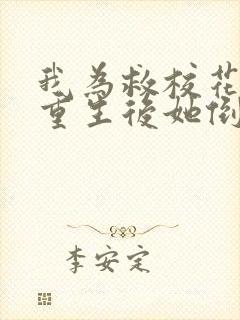 我為救校花
重生後她倒
李安定